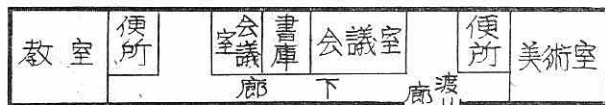 教室
便所
会議室
書庫
会議室
便所
美術室
廊下
渡
廊